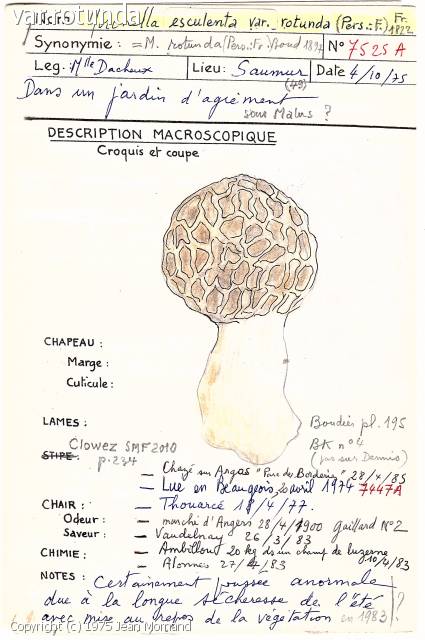 var.rotunda
esculenta var. rotunda (Pers.: F.) Fr. 1822
Synonymie : = M. rotunda (Pers.: Fr.) Boud 1897 N° 7525 A
Leg. Mlle Dacheux Lieu: Saumur (49) Date 4/10/75
Dans un jardin d'agrément
sous Malus ?
DESCRIPTION MACROSCOPIQUE
Croquis et coupe
CHAPEAU :
Marge :
Cuticule :
LAMES :
Boudier pl. 195
BK n° 4
(pas sur Dermis)
Clowez SMF 2010
p. 234
STIPE :
— Chazé sur Argos "Parc de Borderie" 28/4/85
— Lue en Beaugeois, 20 avril 1974 7447A
CHAIR : — Thouarcé 18/4/77.
Odeur : — marché d'Angers 28/4/1900 Gaillard N°2
Saveur : — Vaudelnay 26/3/83
CHIMIE : — Ambillou 20 kg ds un champ de luzerne 10/4/83
— Alonnes 27/4/83
NOTES : Certainement poussée anormale
due à la longue sécheresse de l'été ?
avec mise au repos de la végétation en 1983
Copyright (c) 1975 Jean Mornand